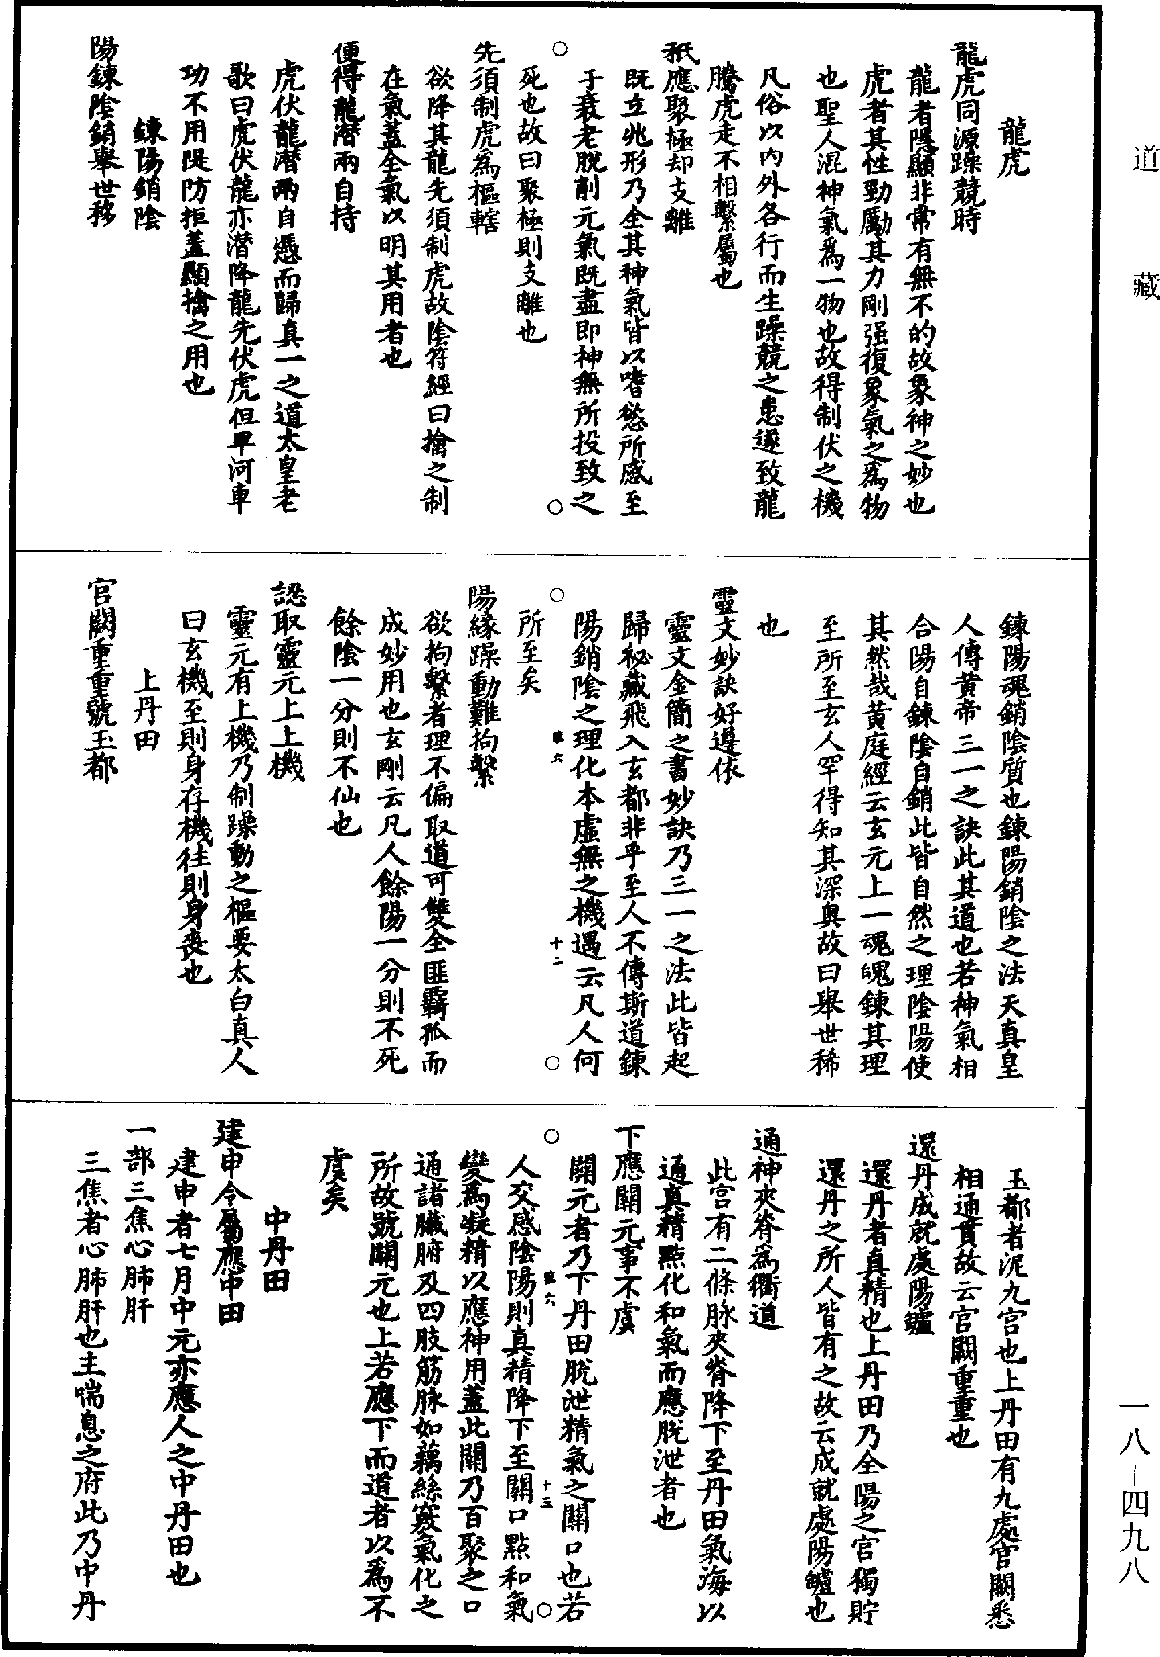 道藏
龍虎
龍虎同源躁競時
龍者隱顯非常有無不的故象神之妙也
虎者其性勁勵其力剛强復象氣之爲物
也聖人混神氣爲一物也故得制伏之機
凡俗以内外各行而生躁競之患遂致龍
騰虎走不相繫屬也
秖應聚極却支離
既立兆形乃全其神氣皆以嗜慾所感至
于衰老脱削元氣既盡即神無所投致之
死也故曰聚極則支離也
先須制虎爲樞轄
欲降其龍先須制虎故陰符經曰擒之制
在氣蓋全氣以明其用者也
便得龍潛兩自持
虎伏龍潛兩自憑而歸真一之道太皇老
歌曰虎伏龍亦潛降龍先伏虎但畢河車
功不用隄防拒蓋顯擒之用也
鍊陽銷陰
陽鍊陰銷舉世移
鍊陽魂銷陰質也鍊陽銷陰之法天真皇
人傳黄帝三一之訣此其道也若神氣相
合陽自鍊陰自銷此皆自然之理陰陽使
其然哉黄庭經云玄元上一魂魄鍊其理
至所至玄人罕得知其深奥故曰舉世稀
也
靈文妙訣好遵依
靈文金簡之書妙訣乃三一之法此皆起
歸秘藏飛入玄都非乎至人不傳斯道鍊
陽銷陰之理化本虛無之機遇云凡人何
所至矣
陽緣躁動難拘繫
欲拘繫者理不偏取道可雙全匪羇孤而
成妙用也玄剛云凡人餘陽一分則不死
餘陰一分則不仙也
認取靈元上上機
靈元有上機乃制躁動之樞要太白真人
曰玄機至則身存機往則身喪也
上丹田
官闕重重號玉都
玉都者泥九宫也上丹田有九處官闕悉
相通貫故云官闕重重也
還丹成就處陽鑪
還丹者真精也上丹田乃全陽之宫獨貯
還丹之所人皆有之故云成就處陽鑪也
通神夾脊爲衢道
此宫有二條脉夾脊降下至丹田氣海以
通真精點化和氣而應脱泄者也
下應關元事不虞
關元者乃下丹田脱泄精氣之關口也若
人交感陰陽則真精降下至關口點和氣
變爲凝精以應神用蓋此關乃百聚之口
通諸臟腑及四肢筋脉如藕絲竅氣化之
所故號關元也上若應下而道者以爲不
虞矣
中丹田
建申令屬應中田
建申者七月中元亦應人之中丹田也
一部三焦心肺肝
三焦者心肺肝也主喘息之府此乃中丹
十二
十三
一八-四九八